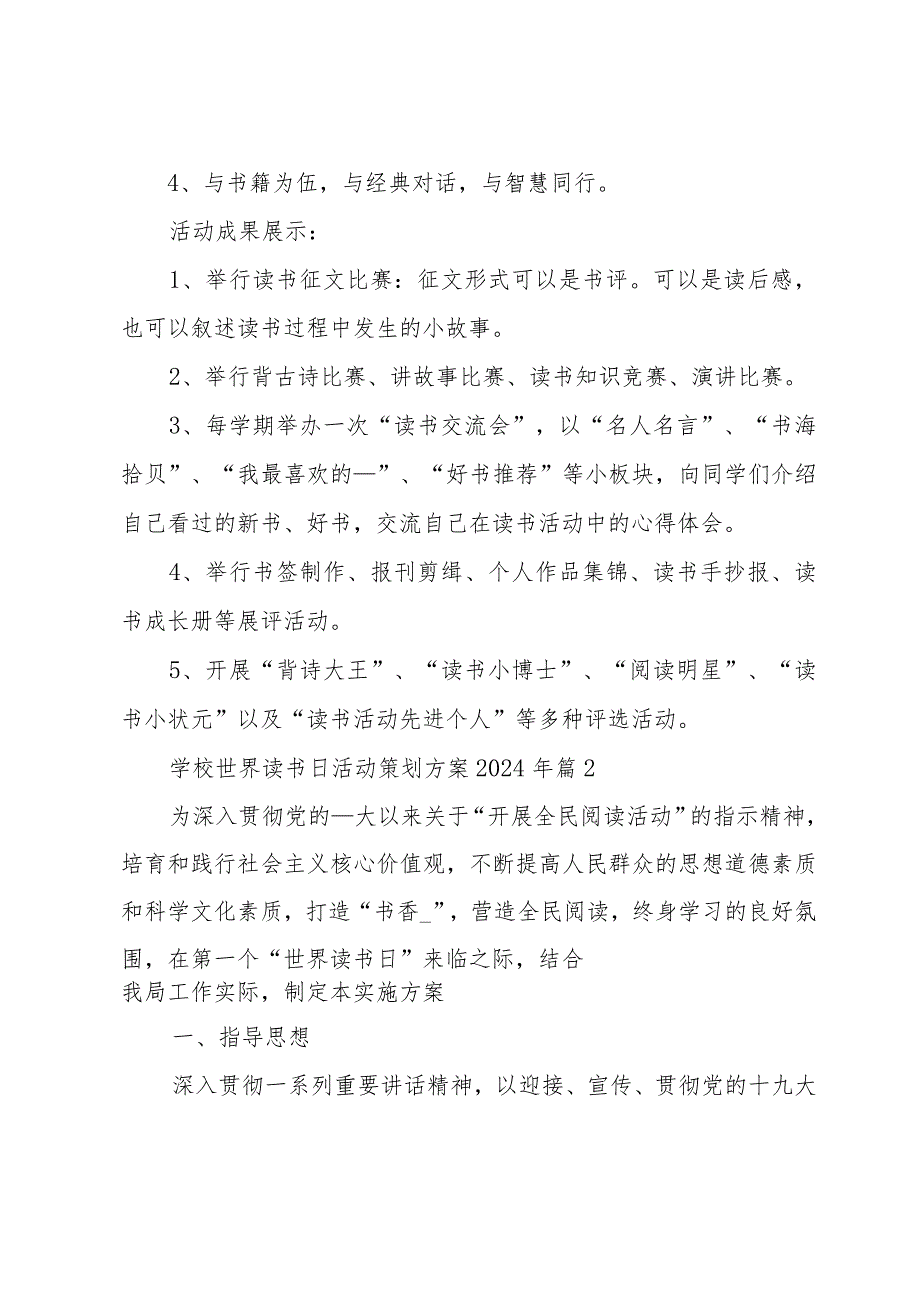 4、与书籍为伍，与经典对话，与智慧同行。
活动成果展示：
1、举行读书征文比赛：征文形式可以是书评。可以是读后感，
也可以叙述读书过程中发生的小故事。
2、举行背古诗比赛、讲故事比赛、读书知识竞赛、演讲比赛。
3、每学期举办一次“读书交流会”，以“名人名言”、“书海
拾贝”、“我最喜欢的—”、“好书推荐”等小板块，向同学们介绍
自己看过的新书、好书，交流自己在读书活动中的心得体会。
4、举行书签制作、报刊剪缉、个人作品集锦、读书手抄报、读
书成长册等展评活动。
5、开展“背诗大王”、“读书小博士”、“阅读明星”、“读
书小状元”以及“读书活动先进个人”等多种评选活动。
学校世界读书日活动策划方案 2024 年篇 2
为深入贯彻党的—大以来关于“开展全民阅读活动”的指示精神，
培育和践行社会主义核心价值观，不断提高人民群众的思想道德素质
和科学文化素质，打造“书香_”，营造全民阅读，终身学习的良好氛
围，在第一个“世界读书日”来临之际，结合
我局工作实际，制定本实施方案
一、指导思想
深入贯彻一系列重要讲话精神，以迎接、宣传、贯彻党的十九大